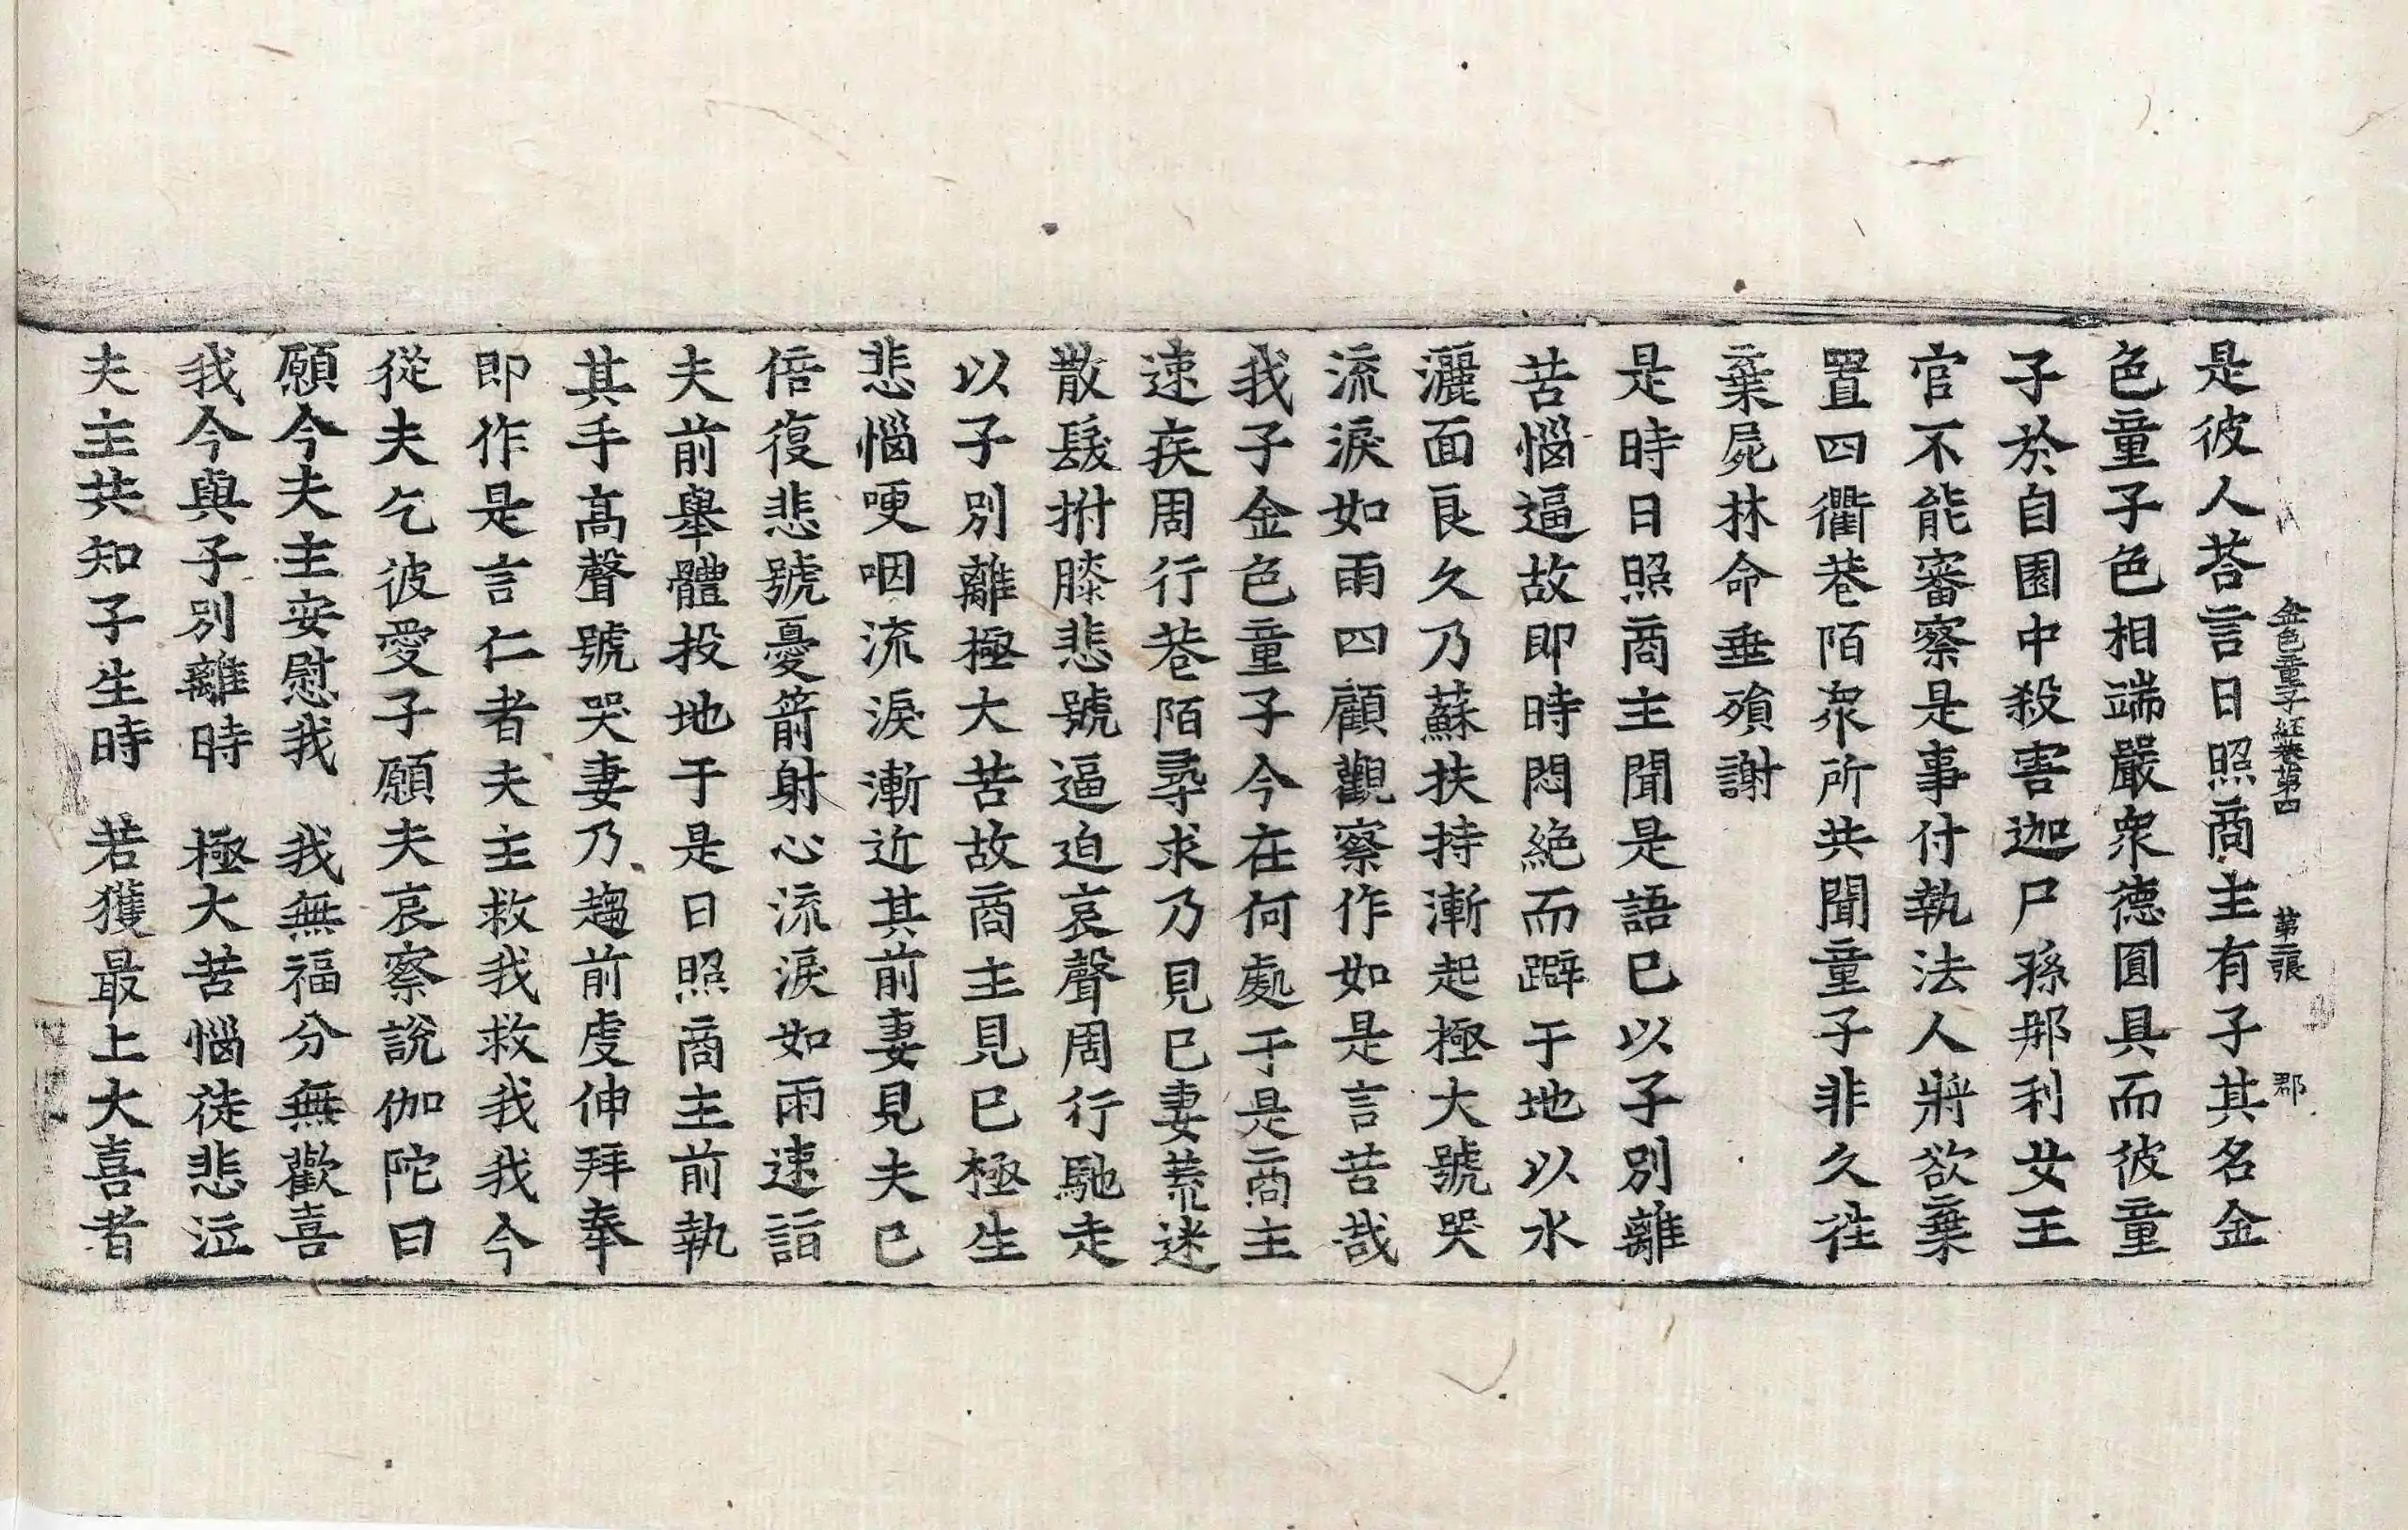 金色童子経巻第四　第二張　郡
是彼人荅言日照商主有子其名金
色童子色相端嚴衆德圓具而彼童
子於自園中殺害迦尸孫那利女王
官不能審察是事付執法人將欲棄
置四衢巷陌衆所共聞童子非久往
棄屍林命垂殞謝
是時日照商主聞是語已以子別離
苦惱逼故即時悶絶而躃于地以水
灑面良久乃蘇扶持漸起極大號哭
流淚如雨四顧觀察作如是言苦哉
我子金色童子今在何處于是商主
速疾周行巷陌尋求乃見已妻荒迷
散髮拊膝悲號逼迫哀聲周行馳走
以子別離極大苦故商主見已極生
悲惱哽咽流淚漸近其前妻見夫已
倍復悲號憂箭射心流淚如雨速詣
夫前舉體投地于是日照商主前執
其手高聲號哭妻乃趨前虔伸拜奉
即作是言仁者夫主救我救我我今
從夫乞彼愛子願夫哀察說伽陀曰
願今夫主安慰我　我無福分無歡喜
我今與子別離時　極大苦惱徒悲泣
夫主共知子生時　若獲最上大喜者